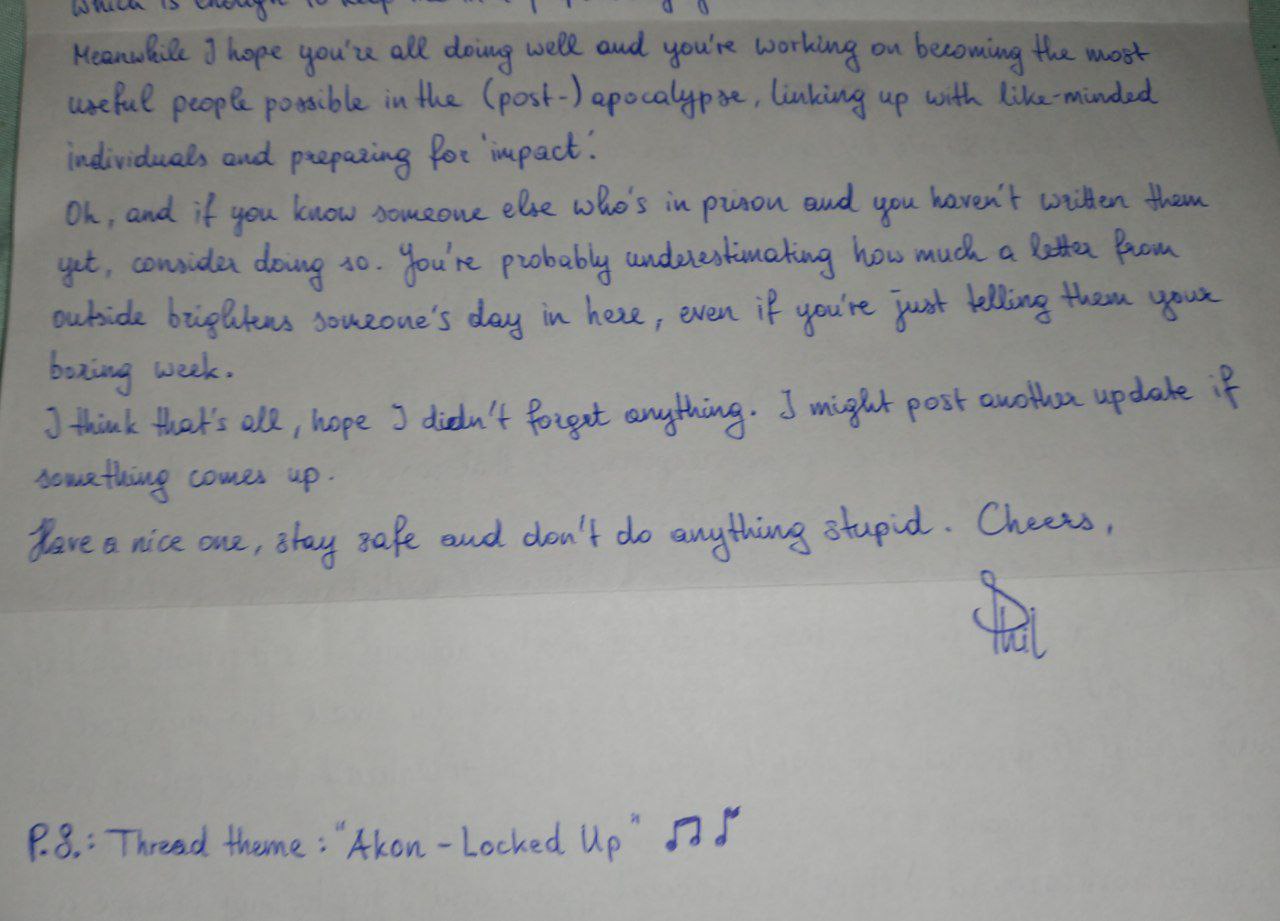 which is enough to keep me in a
Meanwhile I hope you're all doing well and you're working on becoming the most
useful people possible in the (post-)apocalypse, linking up with like-minded
individuals and preparing for 'impact'.
Oh, and if you know someone else who's in prison and you haven't written them
yet, consider doing so. You're probably underestimating how much a letter from
outside brightens someone's day in here, even if you're just telling them your
boring week.
I think that's all, hope I didn't forget anything. I might post another update if
something comes up.
Have a nice one, stay safe and don't do anything stupid. Cheers,
Phil
P.S.: Thread theme: "Akon - Locked Up" ♫♪